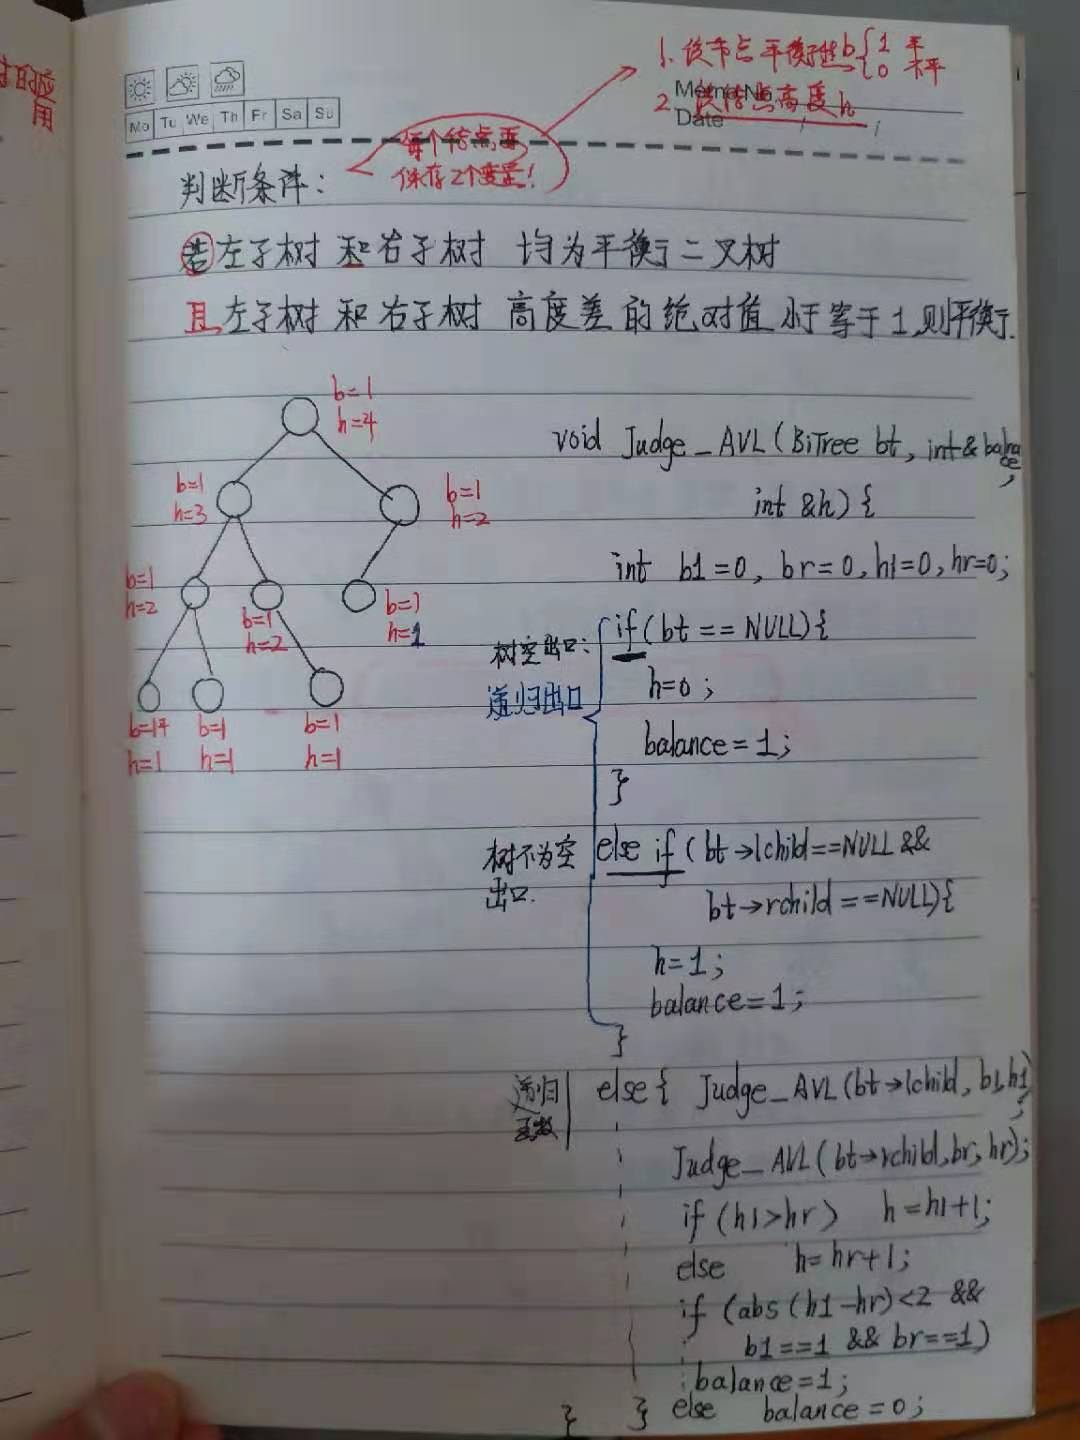 应用
1. 该节点平衡性b{1 平
0 不平
2. 该结点高度h
Memo No.
Date / /
Mo Tu We Th Fr Sa Su
每个结点要
保存2个变量!
判断条件:
若左子树 和右子树 均为平衡二叉树
且左子树 和右子树 高度差的绝对值小于等于1,则平衡.
b=1
h=4
b=1
h=3
b=1
h=2
b=1
h=2
b=1
h=2
b=1
h=1
b=1
h=1
b=1
h=1
b=1
h=1
void Judge_AVL(BiTree bt, int& balance,
int &h){
int b1=0, br=0, h1=0, hr=0;
树空出口: if(bt == NULL){
递归出口 h=0;
balance=1;
}
树不为空 else if(bt→lchild==NULL &&
出口. bt→rchild==NULL){
h=1;
balance=1;
}
递归 else{ Judge_AVL(bt→lchild, b1,h1);
函数
Judge_AVL(bt→rchild,br,hr);
if (h1>hr) h=h1+1;
else h=hr+1;
if (abs(h1-hr)<2 &&
b1==1 && br==1)
balance=1;
} } else balance=0;